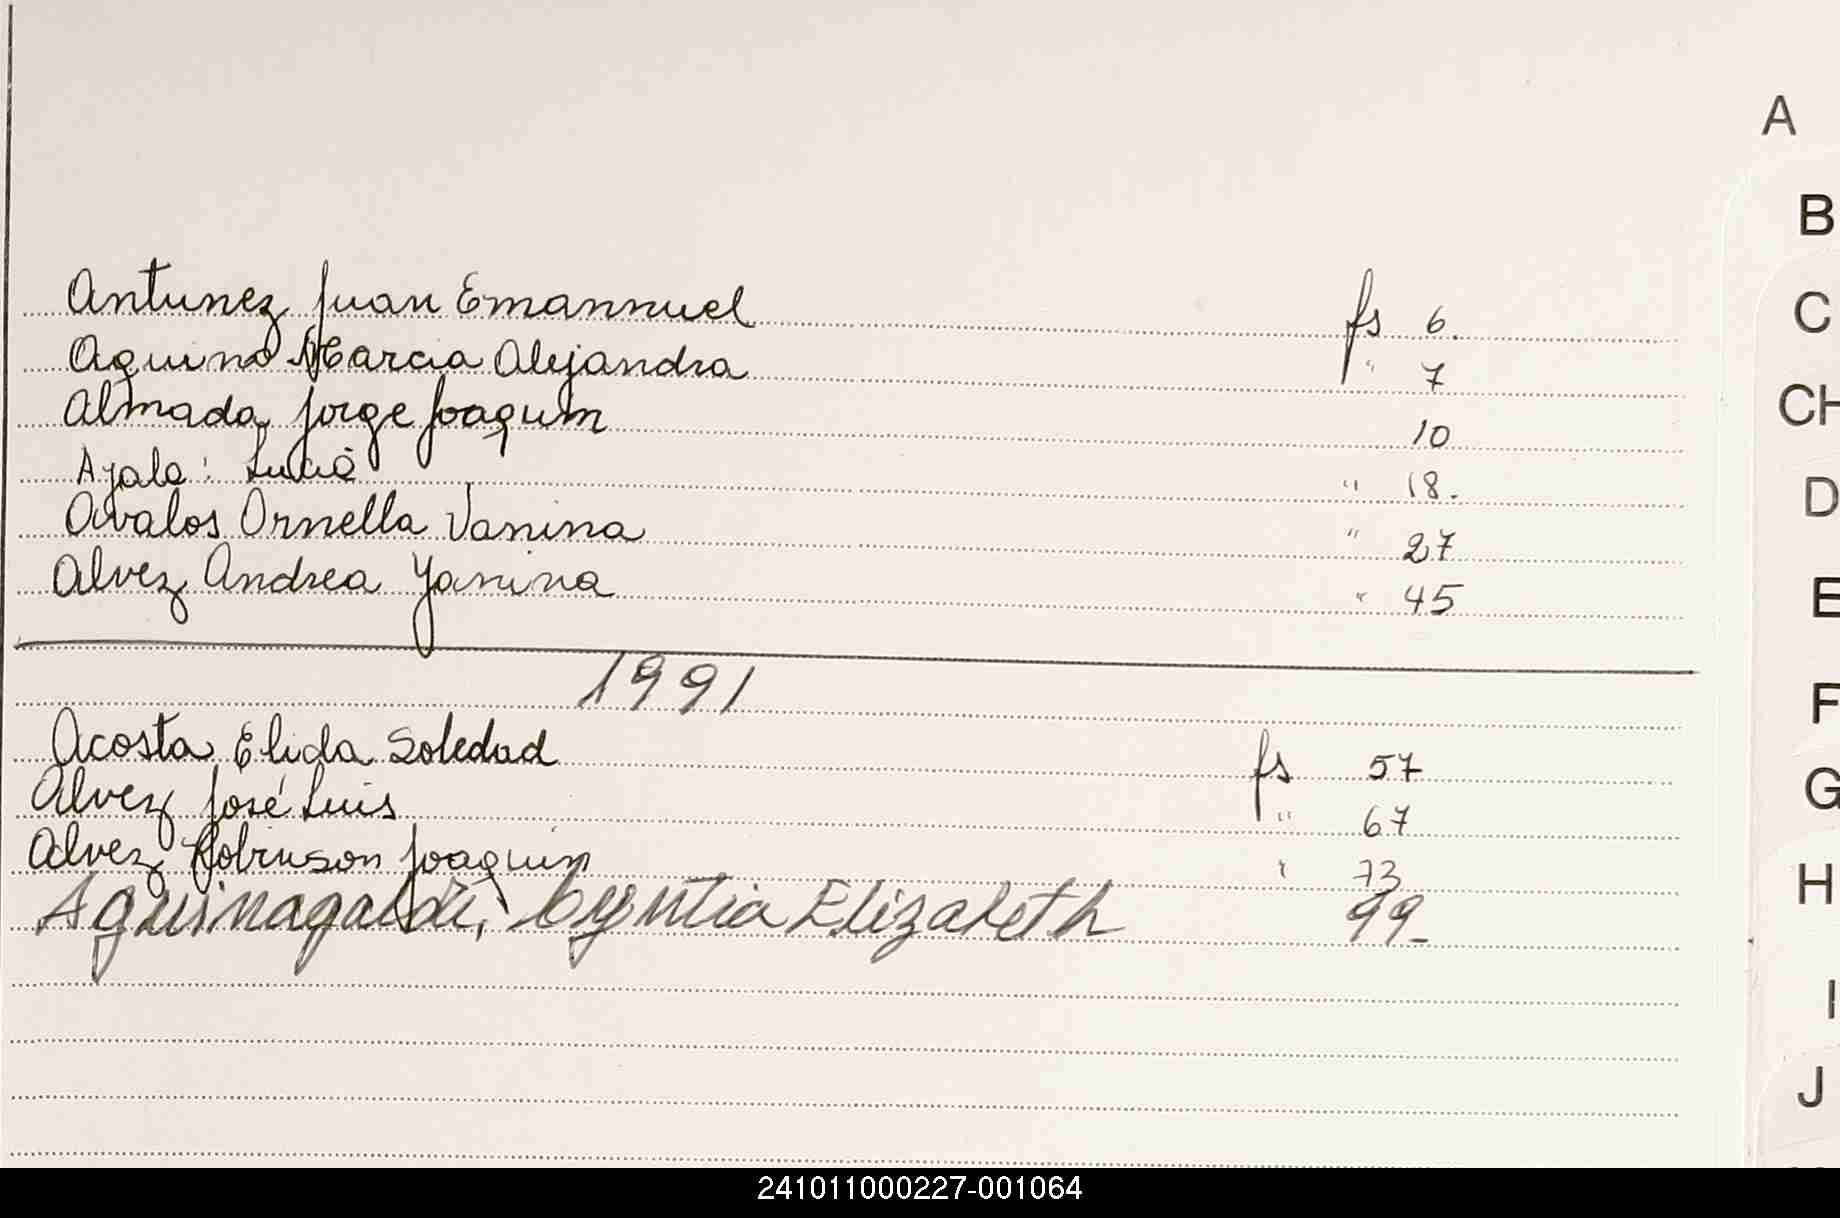 Antunez Juan Emannuel fs 6.
Aquino Marcia Alejandra " 7
Almada Jorge Joaquim 10
Ayala: Lucia " 18.
Avalos Ornella Vanina " 27
Alvez Andrea Yanina " 45
1991
Acosta Elida Soledad fs 57
Alvez José Luis " 67
Alvez Robinson Joaquin " 73
Cyntia Elizabeth 99-
A
B
C
CH
D
E
F
G
H
I
J
241011000227-001064